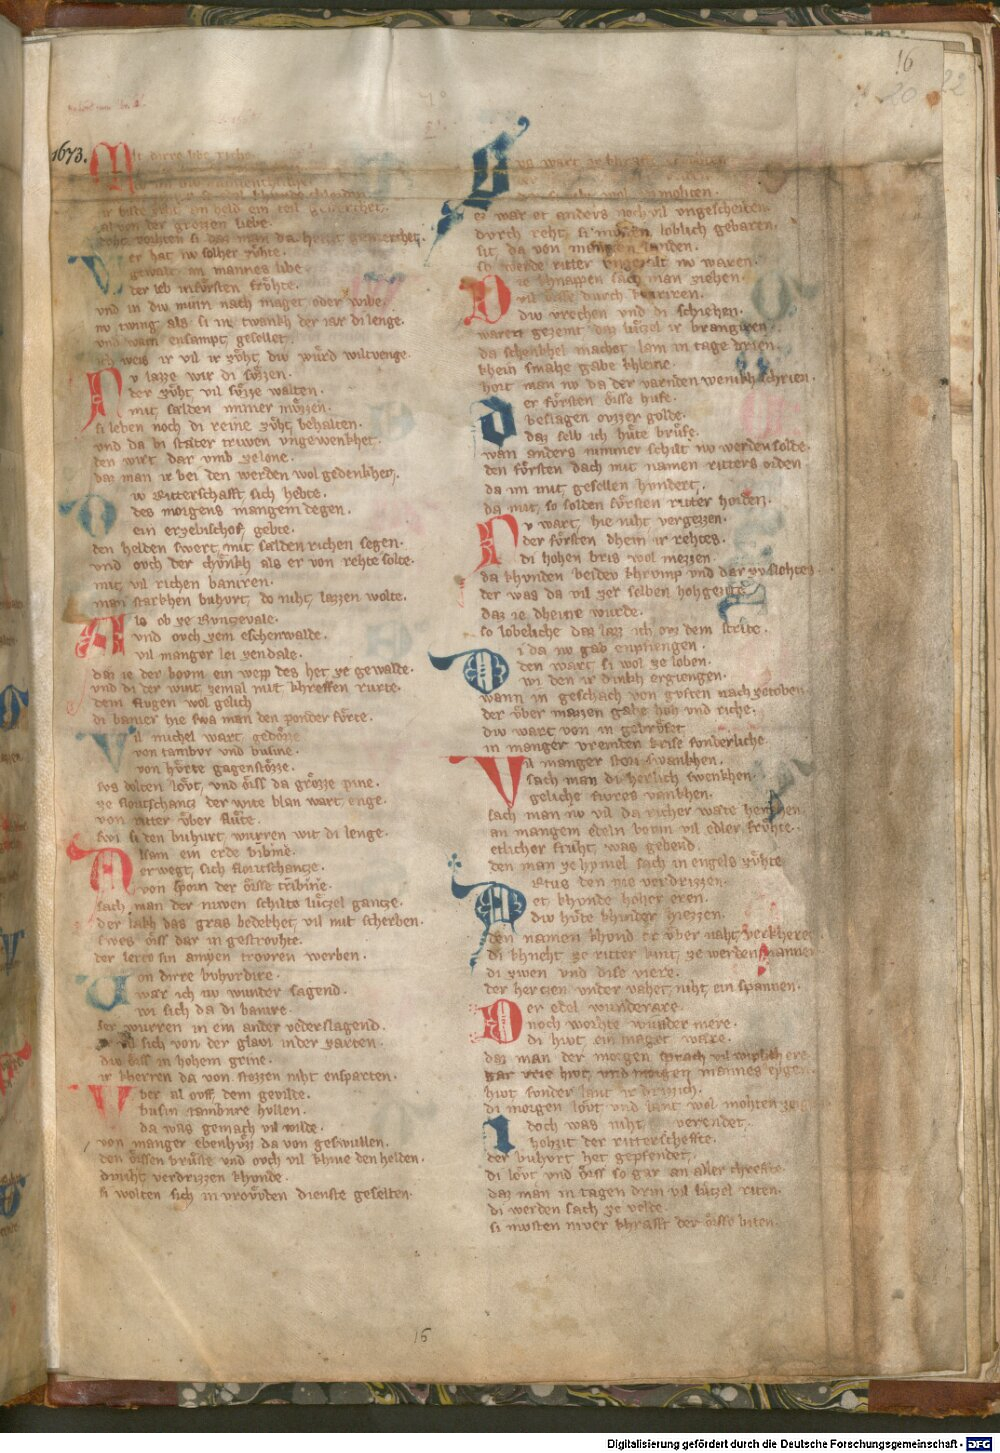 16
20
22
1673.
Mit dirre
ir biste zuht an held ein teil
al von der grozzen liebe
er hat nv solher zuhte.
gewalt an mannes libe
der leb in förten fröhte.
vnd in div minn nach maget oder wibe.
nv twing als si in twankh der iar di lenge.
vnd warn ensampt gesellet
ich weis ir vil ir zöht div würd wiltvenge.
Nv lazze wir di sözzen.
der zöht vil sözze walten.
mit salden immer müzzen.
si leben noch di reine zöht behalten.
vnd da bi stater truwen vngewenkhet.
den wirt dar vmb zelone.
daz man ir bei den werden wol gedenkhet.
Div Ritterschafft sich hebte.
des morgens mangem degen.
ein erzebischof gebte.
den helden swert mit salden richen segen.
vnd ovch der chünikh als er von rehte solte.
mit vil richen baniren.
man starkhen buhurt do niht lazzen wolte.
Als ob ze Runzevale.
vnd ovch zem eschenwalde.
vil manger lei zendale.
daz ie der bovm ein wepp des het ze gewalde.
vnd di der wint zemal mit khreffen rurte.
dem flugen wol gelich
di banier hie swa man den ponder förte.
Vil michel wart gedözze
von tambvr vnd busine.
von hörte gagenstözze.
svs dolten lövt vnd örss da grözze pine.
ze floritschantz der wite blan wart enge.
von ritter über flüte.
swi si den buhurt wurren wit di lenge.
Alsam ein erde bibine.
erwegt sich floritschantze.
von sporn der örsse tribine.
sach man der niwen schilte lützel gantze.
der lakh das gras bedekhet vil mit scherben.
swes örss dar in gestrovhte.
der lerte sin ampen trovren werben.
Von dirre buhurdire.
war ich nv wunder sagend.
wi sich da di banire.
der wurren in ein ander vederslagend.
vil sich von der glavi inder garten.
div örss in hohem grine.
ir kherren da von stozzen niht ensparten.
Vber al ovff dem gevilde.
busin tambure hullen.
da was gemach vil wilde.
von manger ebenhöh da von geswullen.
den örssen brüste vnd ovch vil khnie den helden.
dnniht verdrizzen khonde.
si wolten sich in vrövden dienste geselten.
ez war et anders noch vil vngescheiden.
dvrch reht si müzen loblich gebaren.
sit da von mangen landen.
so werde ritter vngezalt nv waren.
Die khnappen sach man ziehen.
vil balde durch kroiiren.
div vrechen vnd di schiehen.
waren gezemt daz lützel ir brangiren.
da schenkhel machet lam in tage drien.
khein smahe gabe khleine.
hort man nv da der varnden wenikh schrien.
Der försten örsse hufe.
beslagen ovzzer golde.
daz selb ich hüte brüfe.
wan anders nimmer schilt nv werden solde.
den försten dach mit namen ritters orden
da im mit gesellen hundert.
da mit so solden försten ritter horden.
Nv wart hie niht vergezzen.
der försten dhein ir rehtes.
di hohen bris wol mezzen.
da khvnden beidev khrvmp vnd dar zv slehtes
der was da vil zer selben hohgezite
daz ie dheine wurde.
so lobeliche daz lazz ich ovz dem strite.
Di da nv gab enpfiengen.
den wart si wol ze loben.
wi den ir dinkh ergiengen.
wann in geschach von gvften nach zetoben.
der über mazzen gabe hoh vnd riche.
div wart von in gebrüfet
in manger vremden krise svnderliche.
Vil manger stoltz swankhen.
sach man di herlich swenkhen
geliche swres vankhen.
sach man nv vil da richer wate henchen.
an mangem edeln bovm vil edler fröhte.
etlicher fruht was gebend.
den man ze hymel sach in engels zühte
Artus den nie verdrizzen.
et khvnde hoher eren.
div hüte khinder hiezzen.
den namen khvnd er über naht verkheren
di khneht ze ritter kint ze werden mannen
di zwen vnd dise viere.
der hertzen vnder vahet niht ein spannen.
Der edel wunderare.
noch worhte wunder mere.
di hivt ein maget ware.
daz man der morgen sprach vil wiplich ere
gar vrie hivt vnd morgen mannes eigen.
hivt svnder lant ir drizzich.
di morgen lövt vnd lant wol mohten zeigen
Idoch was niht verendet.
hohzit der ritterscheffte.
der buhurt het gepfendet.
di lövt vnd örss so gar an aller chreffte.
daz man in tagen drin vil lützel riten.
di werden sach ze velde.
si mvsten niver khrafft der örsse biten.
16
Digitalisierung gefördert durch die Deutsche Forschungsgemeinschaft - DFG